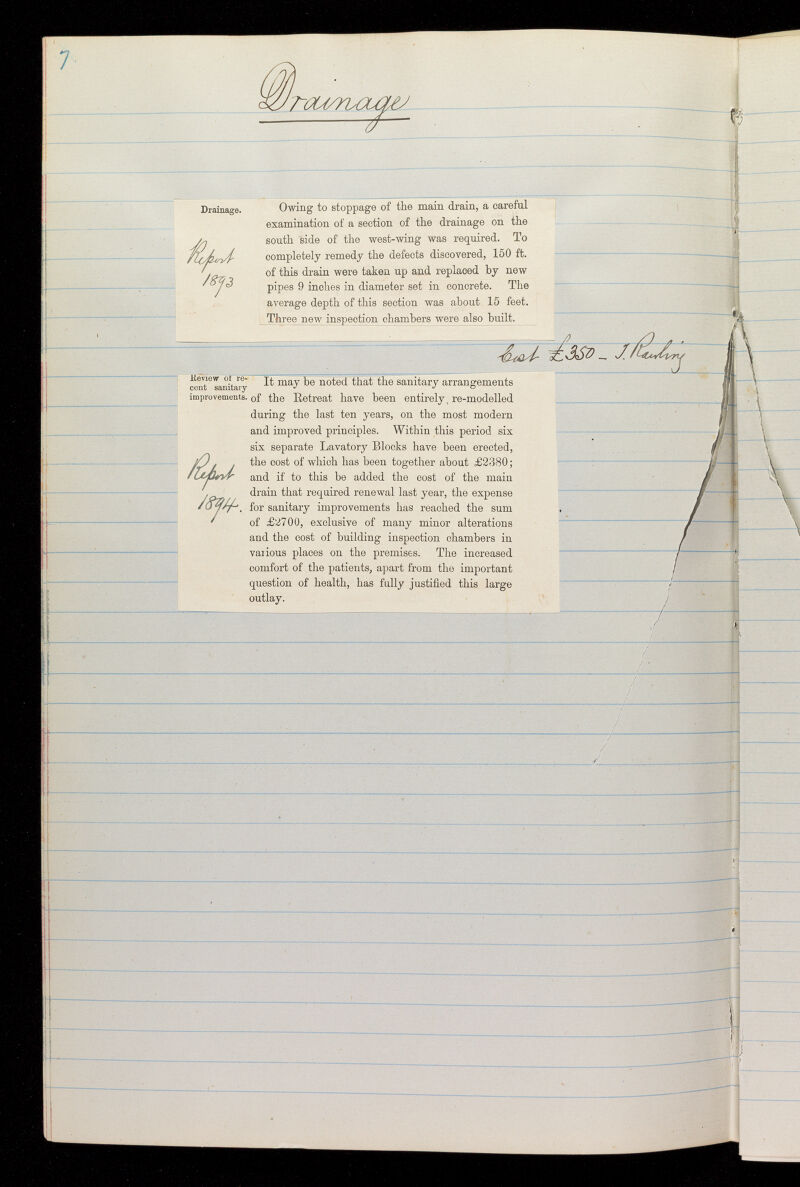 7
Drainage
Drainage.
Report
1893
Owing to stoppage of the main drain, a careful
examination of a section of the drainage on the
south side of the west-wing was required. To
completely remedy the defects discovered, 150 ft.
of this drain were taken up and replaced by new
pipes 9 inches in diameter set in concrete. The
average depth of this section was about 15 feet.
Three new inspection chambers were also built.
Cost £350 - J. Rawling
Review of re-
cent sanitary
improvements.
Report
1894.
It may be noted that the sanitary arrangements
of the Retreat have been entirely re-modelled
during the last ten years, on the most modern
and improved principles. Within this period six
six separate Lavatory Blocks have been erected,
the cost of which has been together about £2380;
and if to this be added the cost of the main
drain that required renewal last year, the expense
for sanitary improvements has reached the sum
of £2700, exclusive of many minor alterations
and the cost of building inspection chambers in
various places on the premises. The increased
comfort of the patients, apart from the important
question of health, has fully justified this large
outlay.